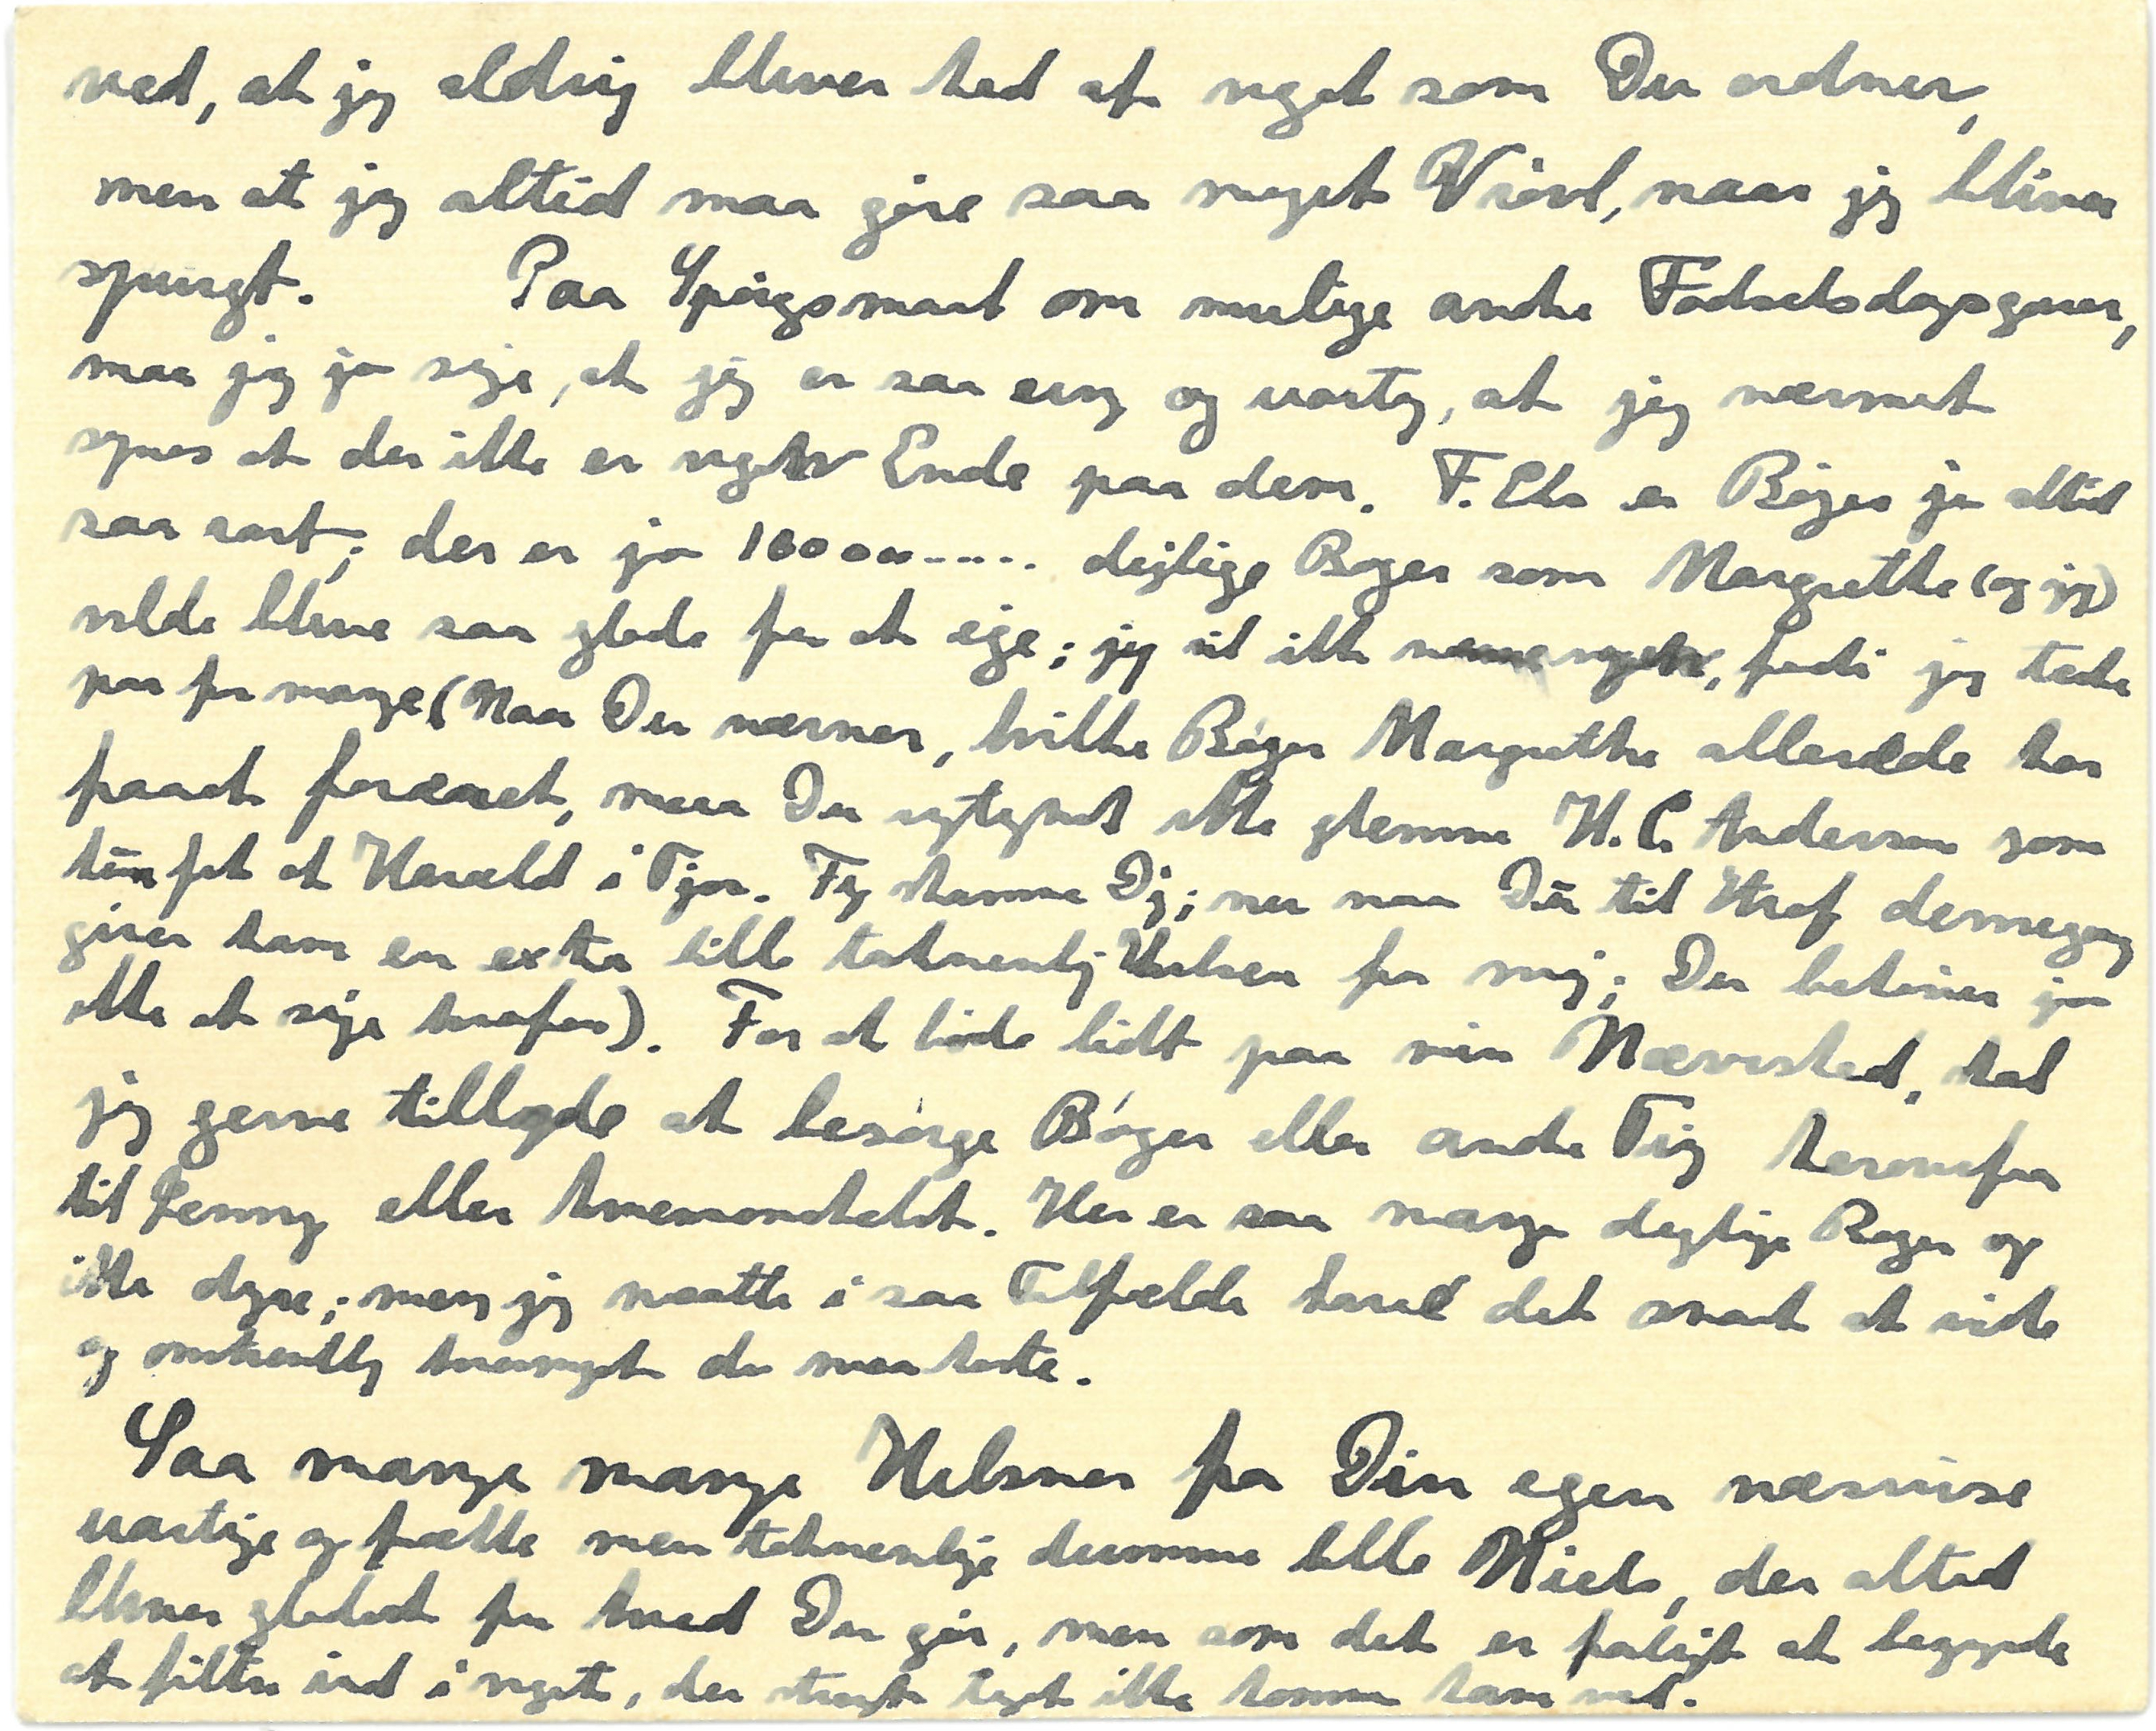 ved, at jeg aldrig bliver ked af noget som Du ordner,
men at jeg altid maa gøre saa meget Vrøvl, naar jeg bliver
spurgt. Paa Spørgsmaal om mulige andre Fødselsdagsgaver,
maa jeg jo sige, at jeg er saa ung og uartig, at jeg nærmest
synes at der ikke er nogen Ende paa dem. F. Eks er Bøger jo altid
saa rart; der er jo 10000..... dejlige Bøger som Margrethe (og jeg)
vilde blive saa glade for at eje; jeg vil ikke nævne nogen, fordi jeg tænke
paa for mange (Naar Du nævner, hvilke Bøger Margrethe allerede har
faaet foræret, maa Du rigtignok ikke glemme H.C. Andersen som
hun fik af Harald i Fjor. Fy skamme Dig; nu maa Du til Straf dennegang
giver ham en extra lille taknemlig Hilsen fra mig; Du behøver jo
ikke at sige hvorfor). For at bøde lidt paa min Næsvished, skal
jeg gerne tilbyde at besørge Bøger eller andre Ting herovrefra
til Jenny eller hvemsomhelst. Her er saa mange dejlige Bøger og
ikke dyre; men jeg maatte i saa Tilfælde have det snart at vide
og omtrentlig hvormeget de maa koste.
Saa mange mange Hilsner fra Din egen næsvise
uartige og frække men taknemlige dumme lille Niels, der altid
bliver gladest for hvad Du gør, men som det er farligt at begynde
at filtre ind i noget, der strengt taget ikke kommer ham ved.